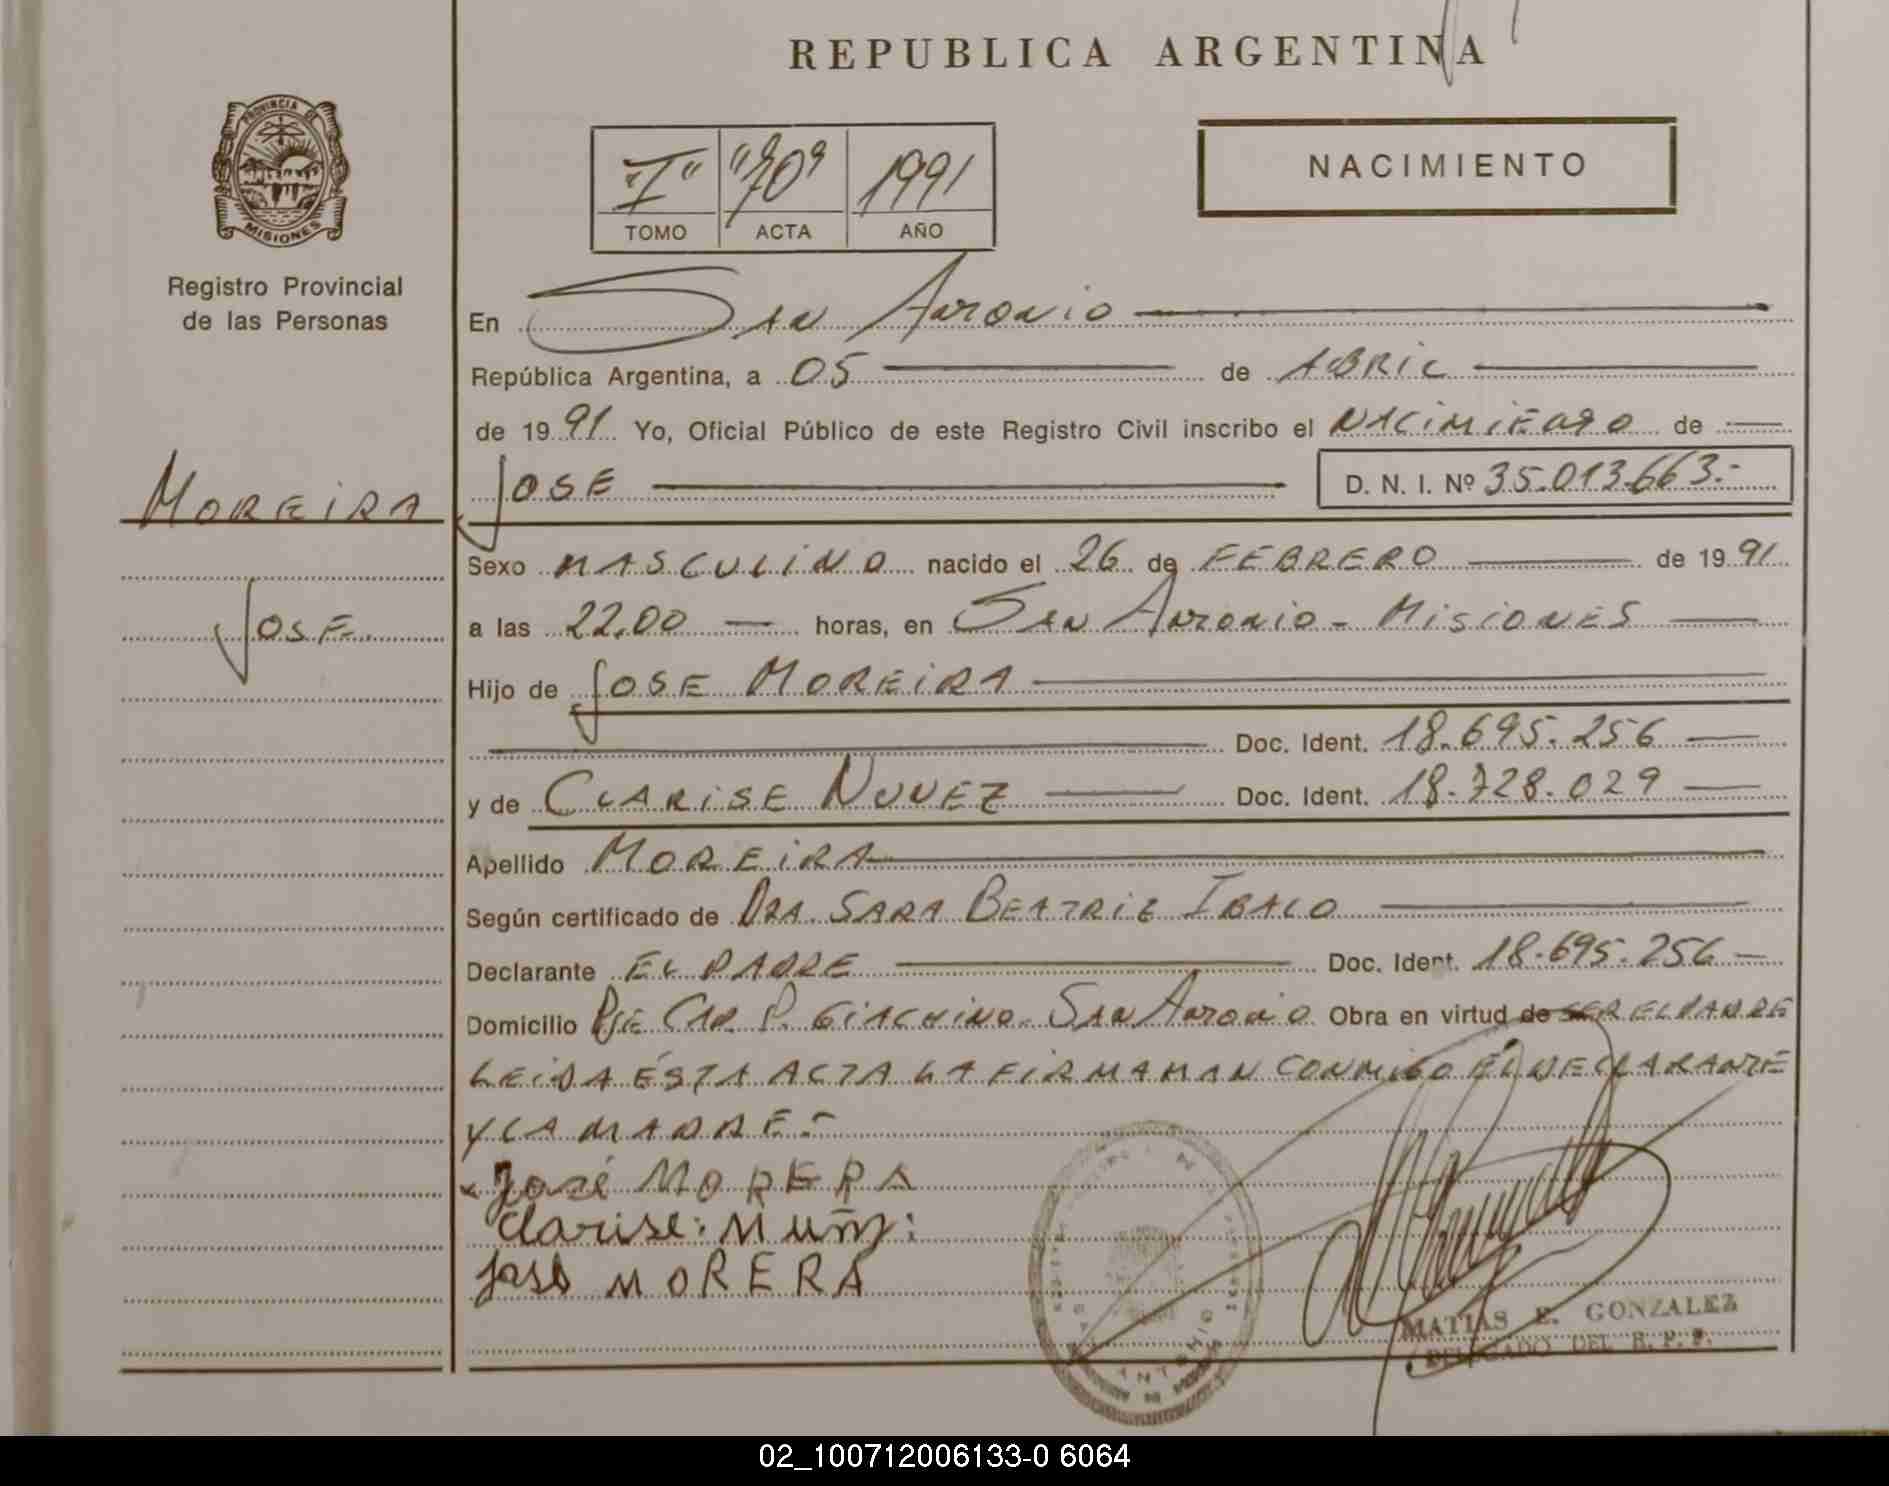 REPUBLICA ARGENTINA
PROVINCIA DE
MISIONES
Registro Provincial
de las Personas
"I" "70" 1991
TOMO ACTA AÑO
NACIMIENTO
En SAN ANTONIO
República Argentina, a 05 de ABRIL
de 1991 Yo, Oficial Público de este Registro Civil inscribo el NACIMIENTO de
MOREIRA
JOSE D. N. I. Nº 35.013.663.-
Sexo MASCULINO nacido el 26 de FEBRERO de 1991
JOSE
a las 22,00 horas, en SAN ANTONIO - MISIONES
Hijo de JOSE MOREIRA
Doc. Ident. 18.695.256
y de CLARISE NUNEZ Doc. Ident. 18.728.029
Apellido MOREIRA
Según certificado de DRA. SARA BEATRIZ
Declarante EL PADRE Doc. Ident. 18.695.256
Domicilio PJE CAP. P. GIACHINO - SAN ANTONIO Obra en virtud de SER EL PADRE
LEIDA ÉSTA ACTA LA FIRMAMAN CONMIGO EL DECLARANTE
Y LA MADRE.-
José MORERA
Clarise:
José MORERA
MATIAS E. GONZALEZ
DELEGADO DEL R. P. P.
02_100712006133-0 6064